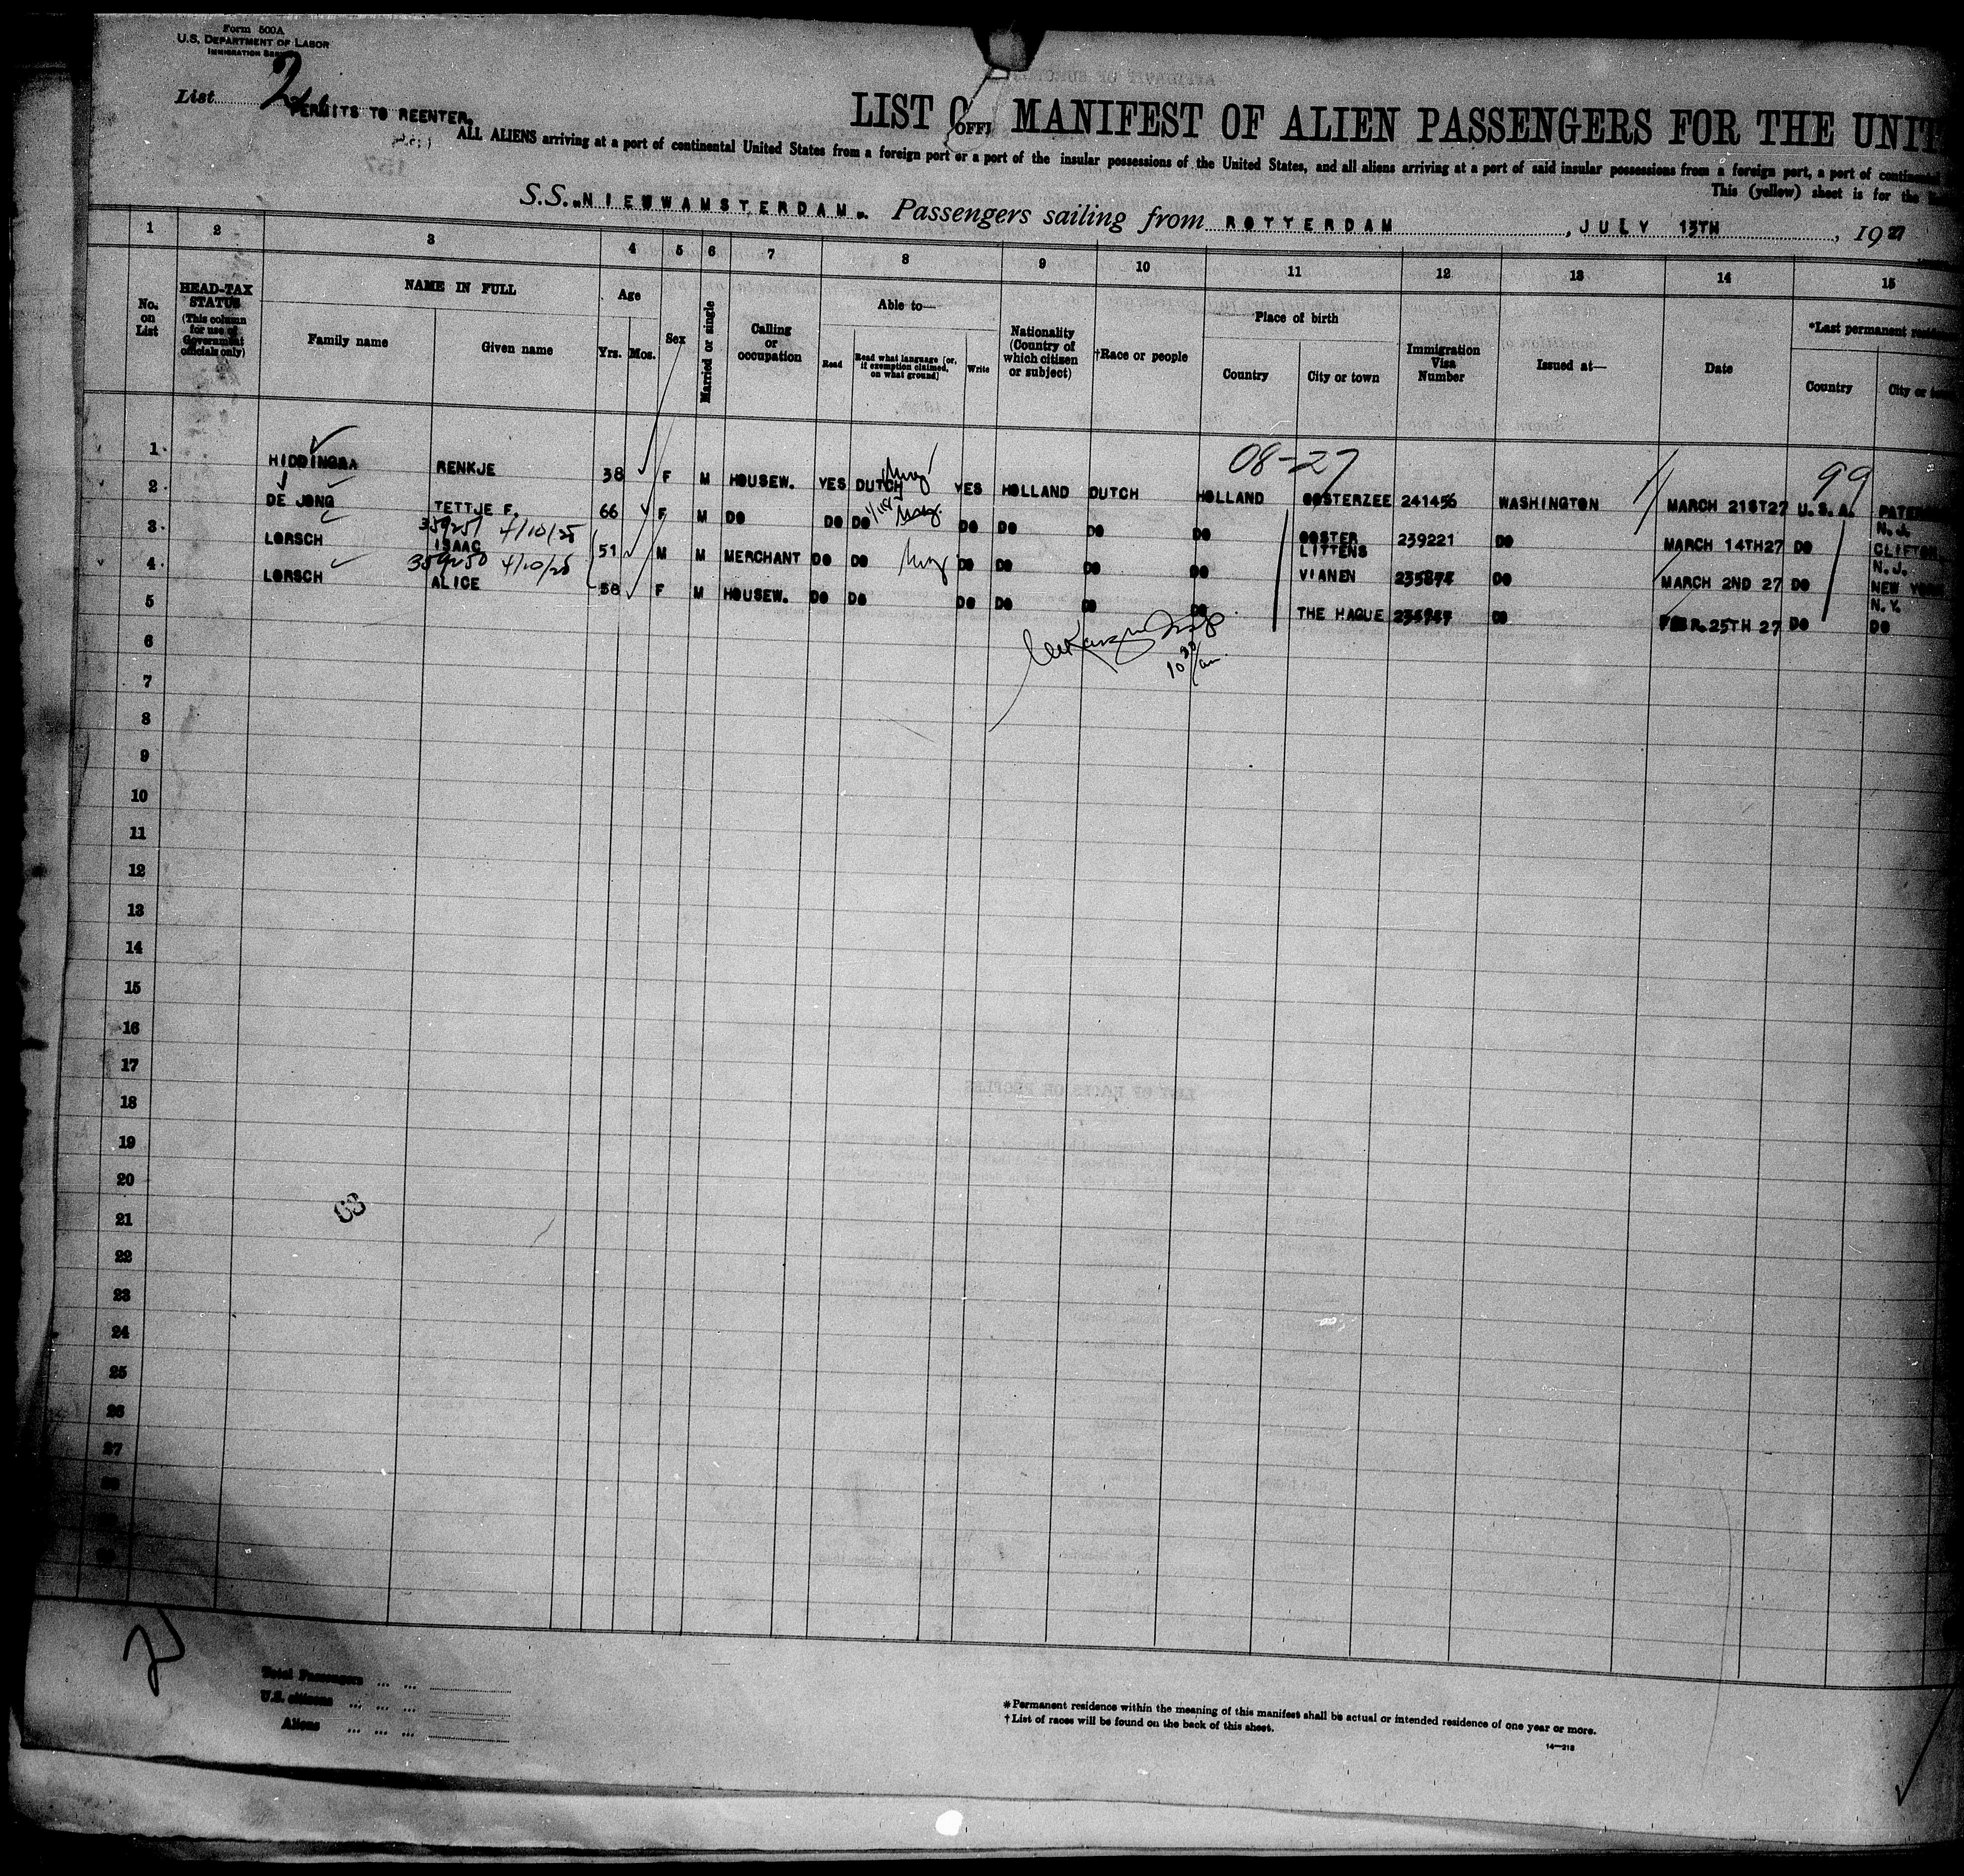 Form 500A
U.S. DEPARTMENT OF LABOR
IMMIGRATION
List 2
PERMITS TO REENTER.
LIST MANIFEST OF ALIEN PASSENGERS FOR THE UNIT
ALL ALIENS arriving at a port of continental United States from a foreign port or a port of the insular possessions of the United States, and all aliens arriving at a port of said insular possessions from a foreign port, a port of continental
This (yellow) sheet is for the
S.S. "NIEUWAMSTERDAM". Passengers sailing from ROTTERDAM, JULY 13TH, 1927
1 2 3 4 5 6 7 8 9 10 11 12 13 14 15
No. on List
HEAD-TAX STATUS (This column for use of Government officials only)
NAME IN FULL
Family name
Given name
Age
Yrs. Mos.
Sex
Married or single
Calling or occupation
Able to—
Read
Read what language [or, if exemption claimed, on what ground]
Write
Nationality (Country of which citizen or subject)
†Race or people
Place of birth
Country
City or town
Immigration Visa Number
Issued at—
Date
*Last permanent
Country
City or
08-27 99
1 HIDDINGRA RENKJE 38 F M HOUSEW. YES DUTCH YES HOLLAND DUTCH HOLLAND OOSTERZEE 241456 WASHINGTON MARCH 21ST27 U.S.A. N.J.
2 DE JONG TETTJE F. 66 F M DO DO DO DO DO DO DO OOSTER LITTENS 239221 DO MARCH 14TH27 DO CLIFTON N.J.
359251 4/10/25
3 LORSCH ISAAC 51 M M MERCHANT DO DO DO DO DO DO VIANEN 235874 DO MARCH 2ND 27 DO NEW YORK N.Y.
359250 4/10/25
4 LORSCH ALICE 58 F M HOUSEW. DO DO DO DO DO DO THE HAGUE DO FEBR.25TH 27 DO DO
5
6
10 30/am
7
8
9
10
11
12
13
14
15
16
17
18
19
20
21
22
23
24
25
26
27
2
Total Passengers
U.S. citizens
Aliens
*Permanent residence within the meaning of this manifest shall be actual or intended residence of one year or more.
†List of races will be found on the back of this sheet.
14—213